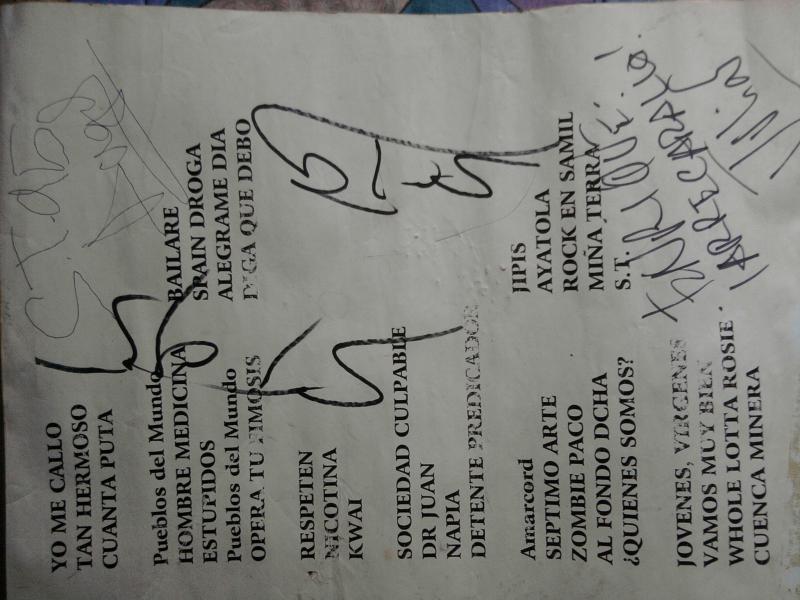 YO ME CALLO
TAN HERMOSO
CUANTA PUTA
Pueblos del Mundo
HOMBRE MEDICINA
ESTUPIDOS
Pueblos del Mundo
OPERA TU FIMOSIS
RESPETEN
NICOTINA
KWAI
SOCIEDAD CULPABLE
DR JUAN
NAPIA
DETENTE PREDICADOR
Amarcord
SEPTIMO ARTE
ZOMBIE PACO
AL FONDO DCHA
¿QUIENES SOMOS?
JOVENES, VIRGENES
VAMOS MUY BIEN
WHOLE LOTTA ROSIE
CUENCA MINERA
BAILARE
SPAIN DROGA
ALEGRAME DIA
DIGA QUE DEBO
JIPIS
AYATOLA
ROCK EN SAMIL
MIÑA TERRA
S.T.